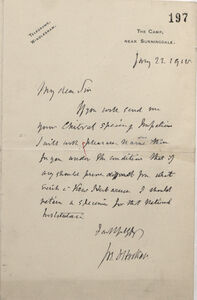 197
TELEGRAMS,
WINDLESHAM.
THE CAMP,
NEAR SUNNINGDALE.
Jany 22 1910
My dear Sir
If you will send me
your Chitral species Impatiens
I will with pleasure name them
for you under the condition that if
any should prove for what
such a Kew Herbarium I should
retain a specimen for that National
Institution
J D Hooker